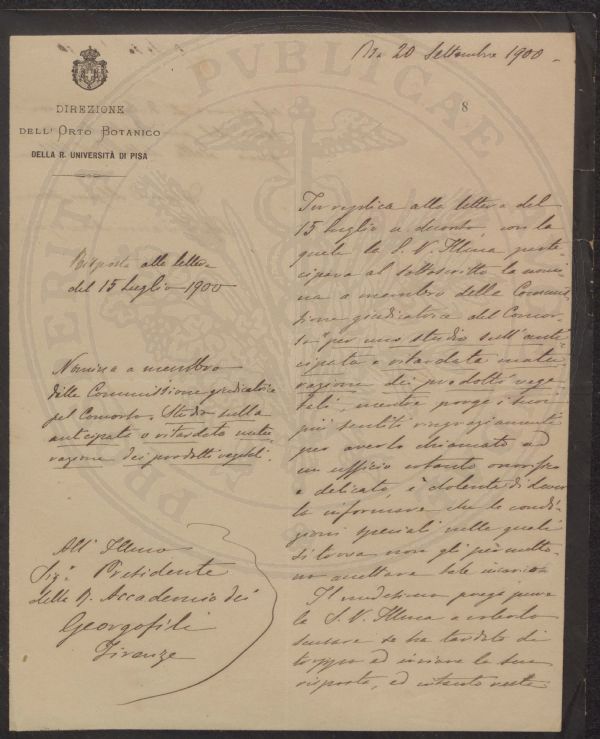 Pisa 20 Settembre 1900
8
DIREZIONE
DELL'ORTO BOTANICO
DELLA R. UNIVERSITÀ DI PISA
Risposta alla lettera
del 15 Luglio 1900
Nomina a membro
della Commissione giudicatrice
pel Concorso. Studio sulla
anticipata o ritardata matu-
razione dei prodotti vegetali.
All' Illmo
Sigr. Presidente
della R. Accademia dei
Georgofili
Firenze
In replica alla lettera del
15 Luglio u. decorso, con la
quale la S. V. Illma parte-
cipava al sottoscritto la nomi-
na a membro della Commis-
sione giudicatrice del Concor-
so per uno studio sull'anti-
cipata o ritardata matu-
razione dei prodotti vege-
tali, mentre porge i suoi
più sentiti ringraziamenti
per averlo chiamato ad
un ufficio cotanto onorifico
e delicato, è dolente di dover
la informare che le condi-
zioni speciali nelle quali
si trova non gli permetto-
no accettare tale incarico.
Il medesimo prega pure
la S. V. Illma a volerlo
scusare se ha tardato di
troppo ad inviare la sua
risposta, ed intanto resta
PUBLICAE